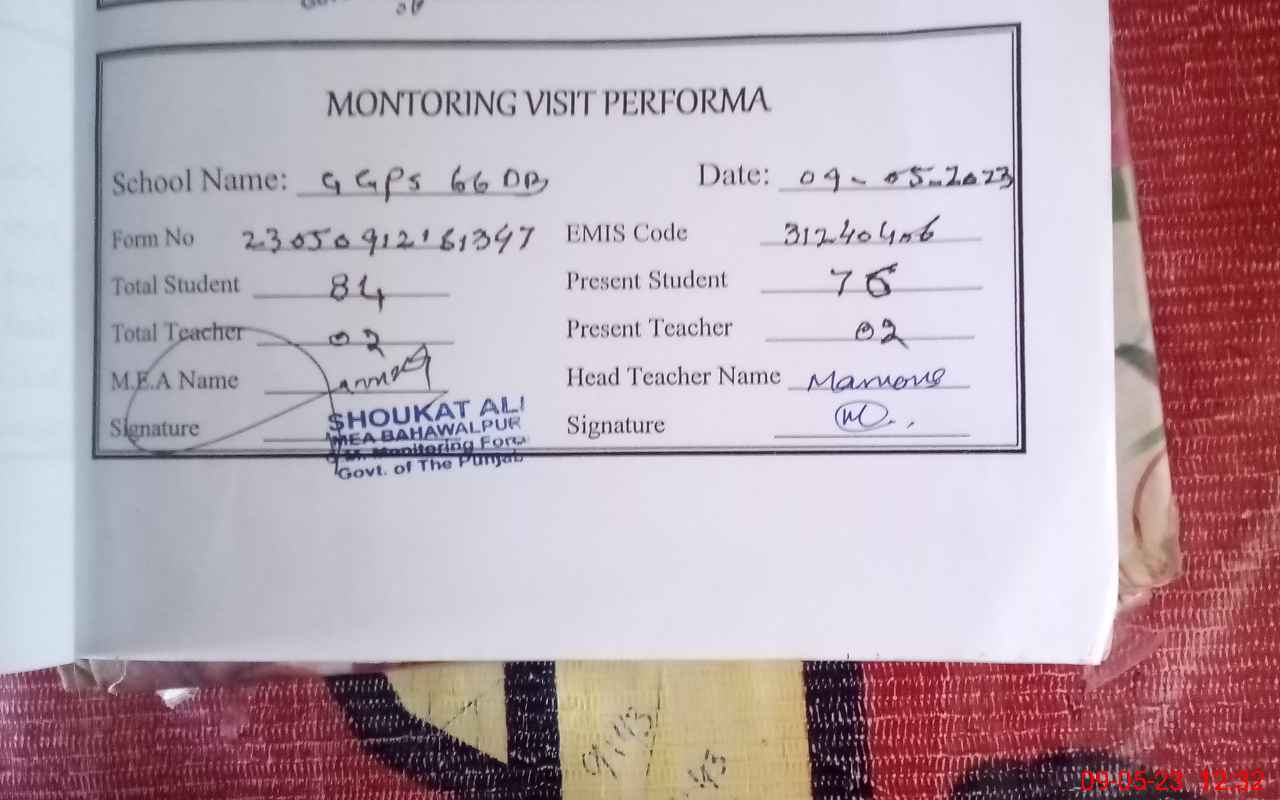 MONTORING VISIT PERFORMA
School Name: GGPS 66 DB Date: 09-05-2023
Form No 23050912161347 EMIS Code 31240406
Total Student 84 Present Student 76
Total Teacher 02 Present Teacher 02
M.E.A Name Head Teacher Name
Signature Signature
SHOUKAT ALI
MEA BAHAWALPUR
Monitoring Force
Govt. of The Punjab
9:43
43
09-05-23 12:32